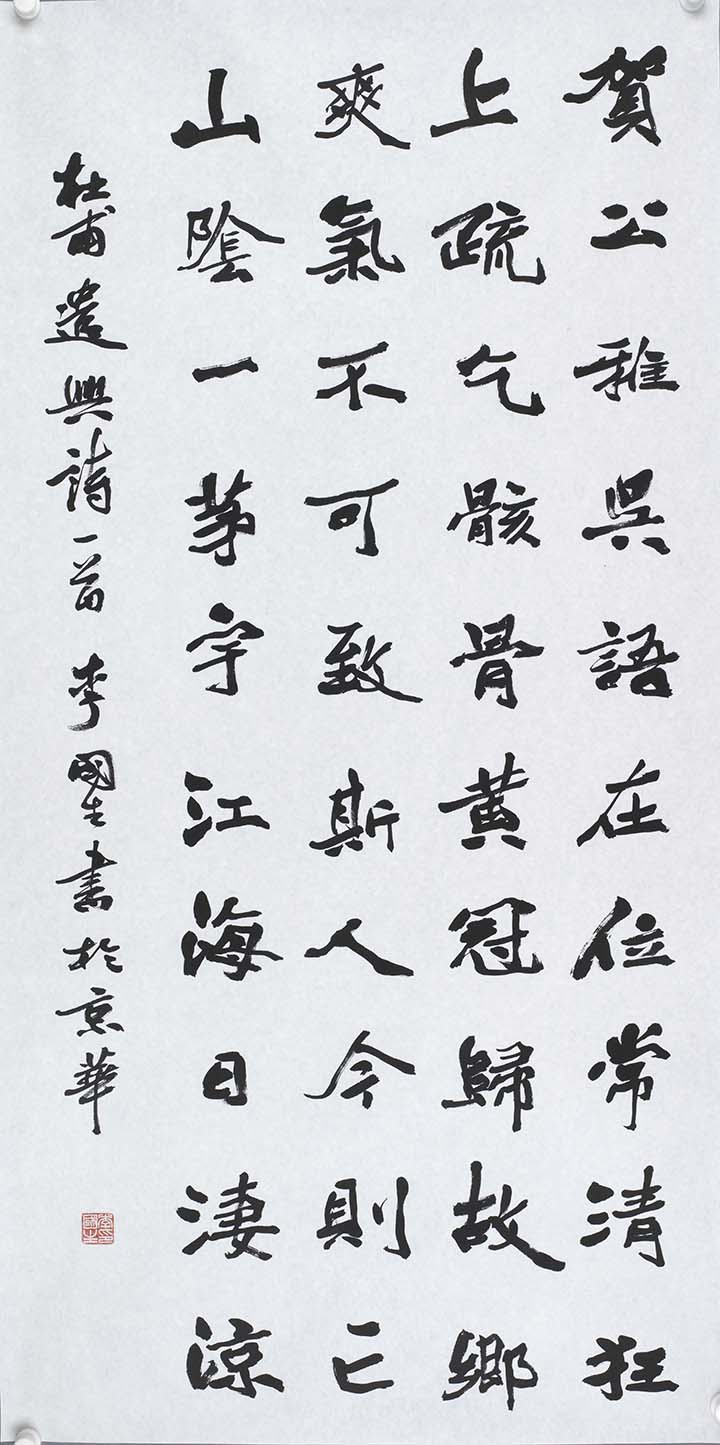 賀公雅吳語在位常清狂
上疏乞骸骨黄冠歸故鄉
爽氣不可致斯人今則亡
山陰一茅宇江海日淒涼
杜甫遣興詩一首 李國生書於京華